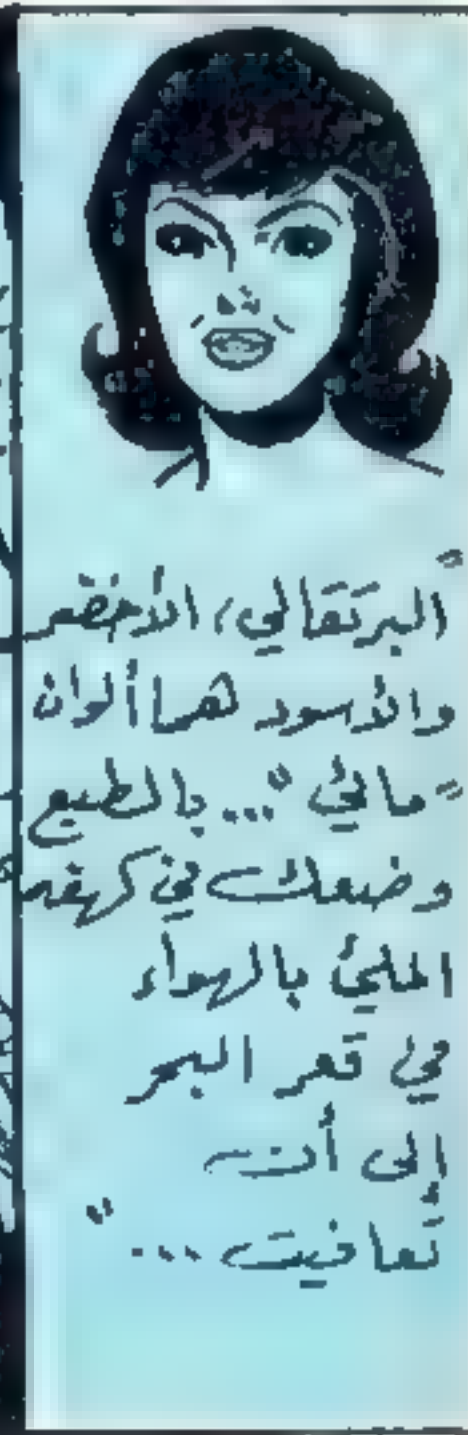 "البرتقالي، الأخضر
والأسود هما ألوان
"مالئ"... بالطبع
وضعك في كهفه
المليئ بالهواء
في قعر البحر
إلى أن
تعافيت..."